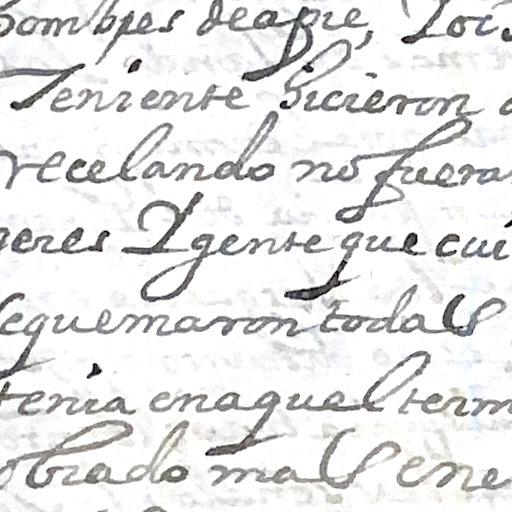 hombres deapie, Y oci
Teniente hicieron
recelando no fuera
geres Y gente que cui
sequemaron todas
tenia enaquel term
obrado mas ene